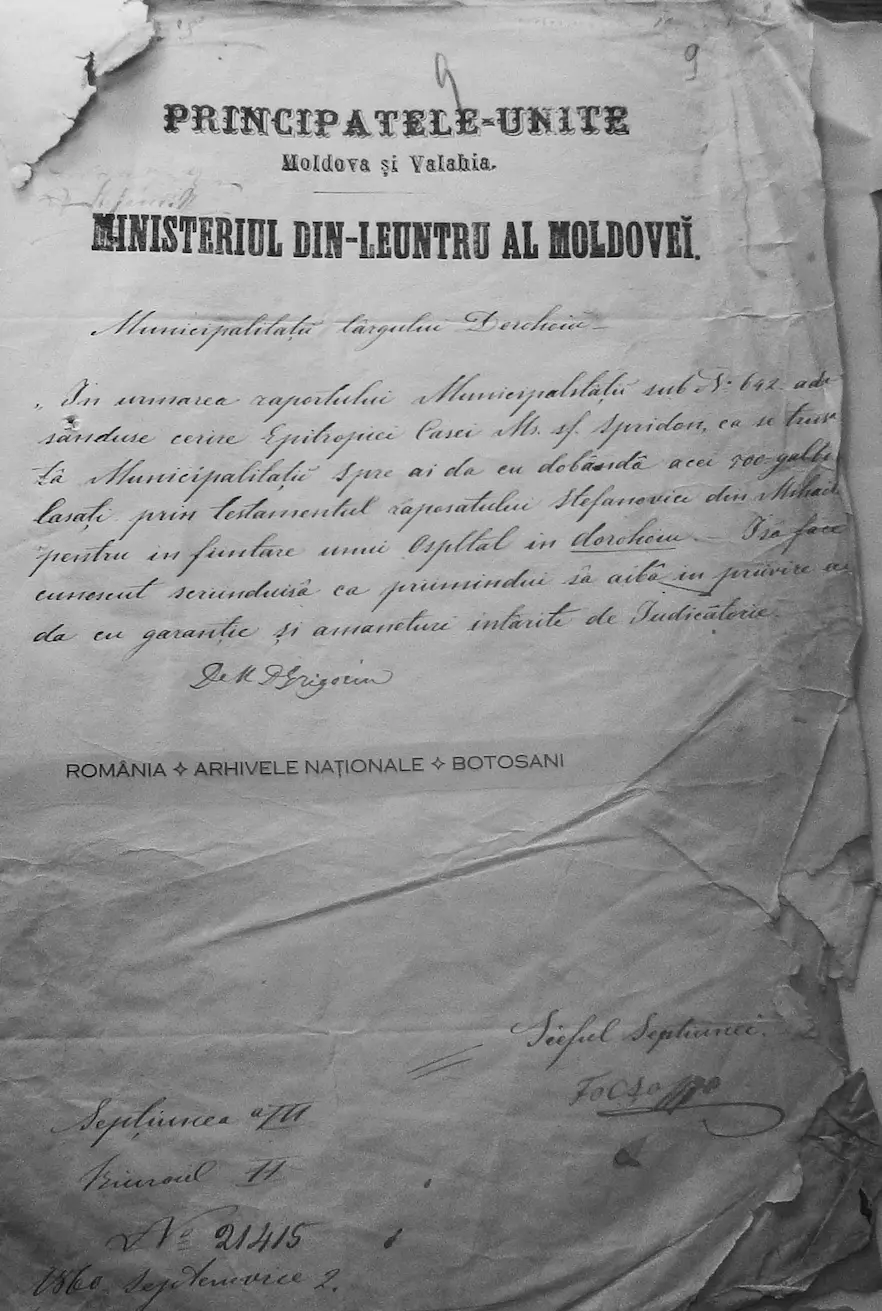 9 9
PRINCIPATELE-UNITE
Moldova și Valahia.
MINISTERIUL DIN-LEUNTRU AL MOLDOVEĬ.
Municipalitații târgului Dorohoiu
In urmarea raportului Municipalitătii sub No 642 adre
sănduse cerire Epitropiei Casei Sf. Spridon, ca se
tă Municipalitații spre ai da cu dobăndă acei galbi
lasați prin testamentul raposatului Stefanovici din Mihail
pentru in funtare unui Ospital in dorohoiu. — I să face
cunoscut ca priimindui să aibă in privire a
da cu garanție și amaneturi intărite de Judicătorie.
ROMÂNIA ✧ ARHIVELE NAȚIONALE ✧ BOTOSANI
Șeful Sepțiunei.
Sepțiunea a III
Biuroul II
No 21415
1860 Septemvrie 2.